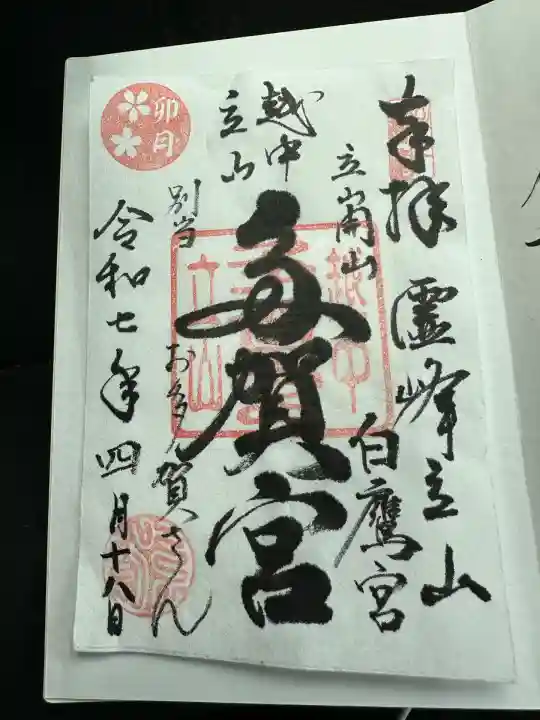 奉拝
霊峰立山
立山開山
白鷹宮
越中
立山
多賀宮
越中
立山
別当
お多賀さん
卯月
令和七年四月十八日